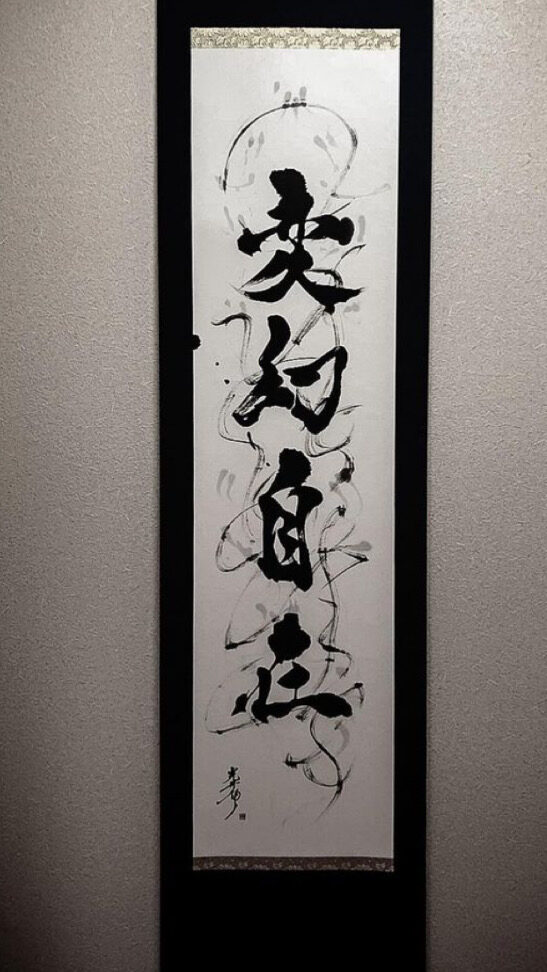 変幻自在